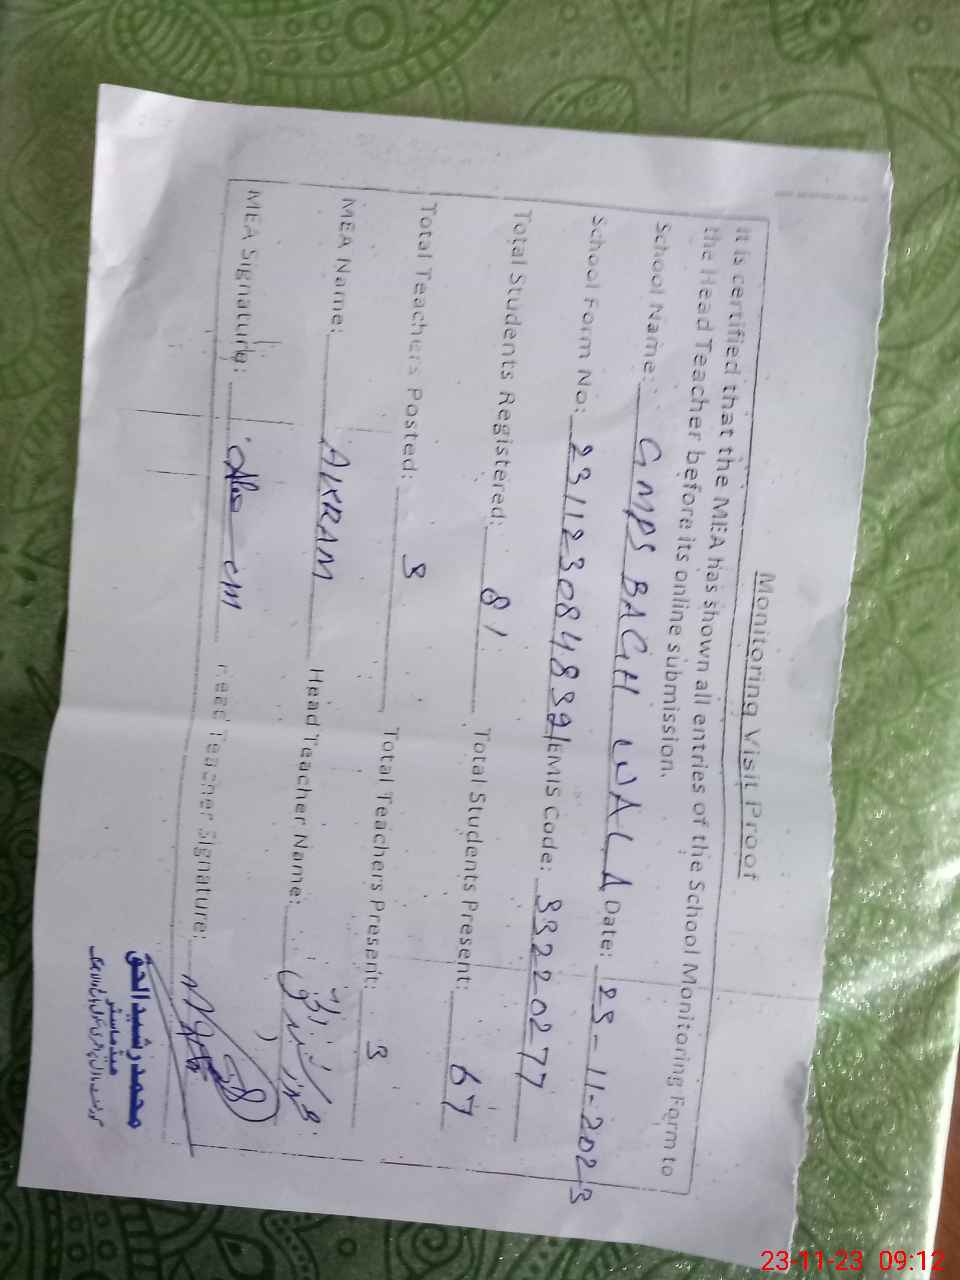 Monitoring Visit Proof
It is certified that the MEA has shown all entries of the School Monitoring Form to
the Head Teacher before its online submission.
School Name: GMPS BAGH WALA Date: 23-11-2023
School Form No: 231123084839 EMIS Code: 38220277
Total Students Registered: 81 Total Students Present: 67
Total Teachers Posted: 3 Total Teachers Present: 3
MEA Name: AKRAM Head Teacher Name: محمد رشید الحق
MEA Signature: Head Teacher Signature:
محمد رشید الحق
ہیڈ ماسٹر
23-11-23 09:12